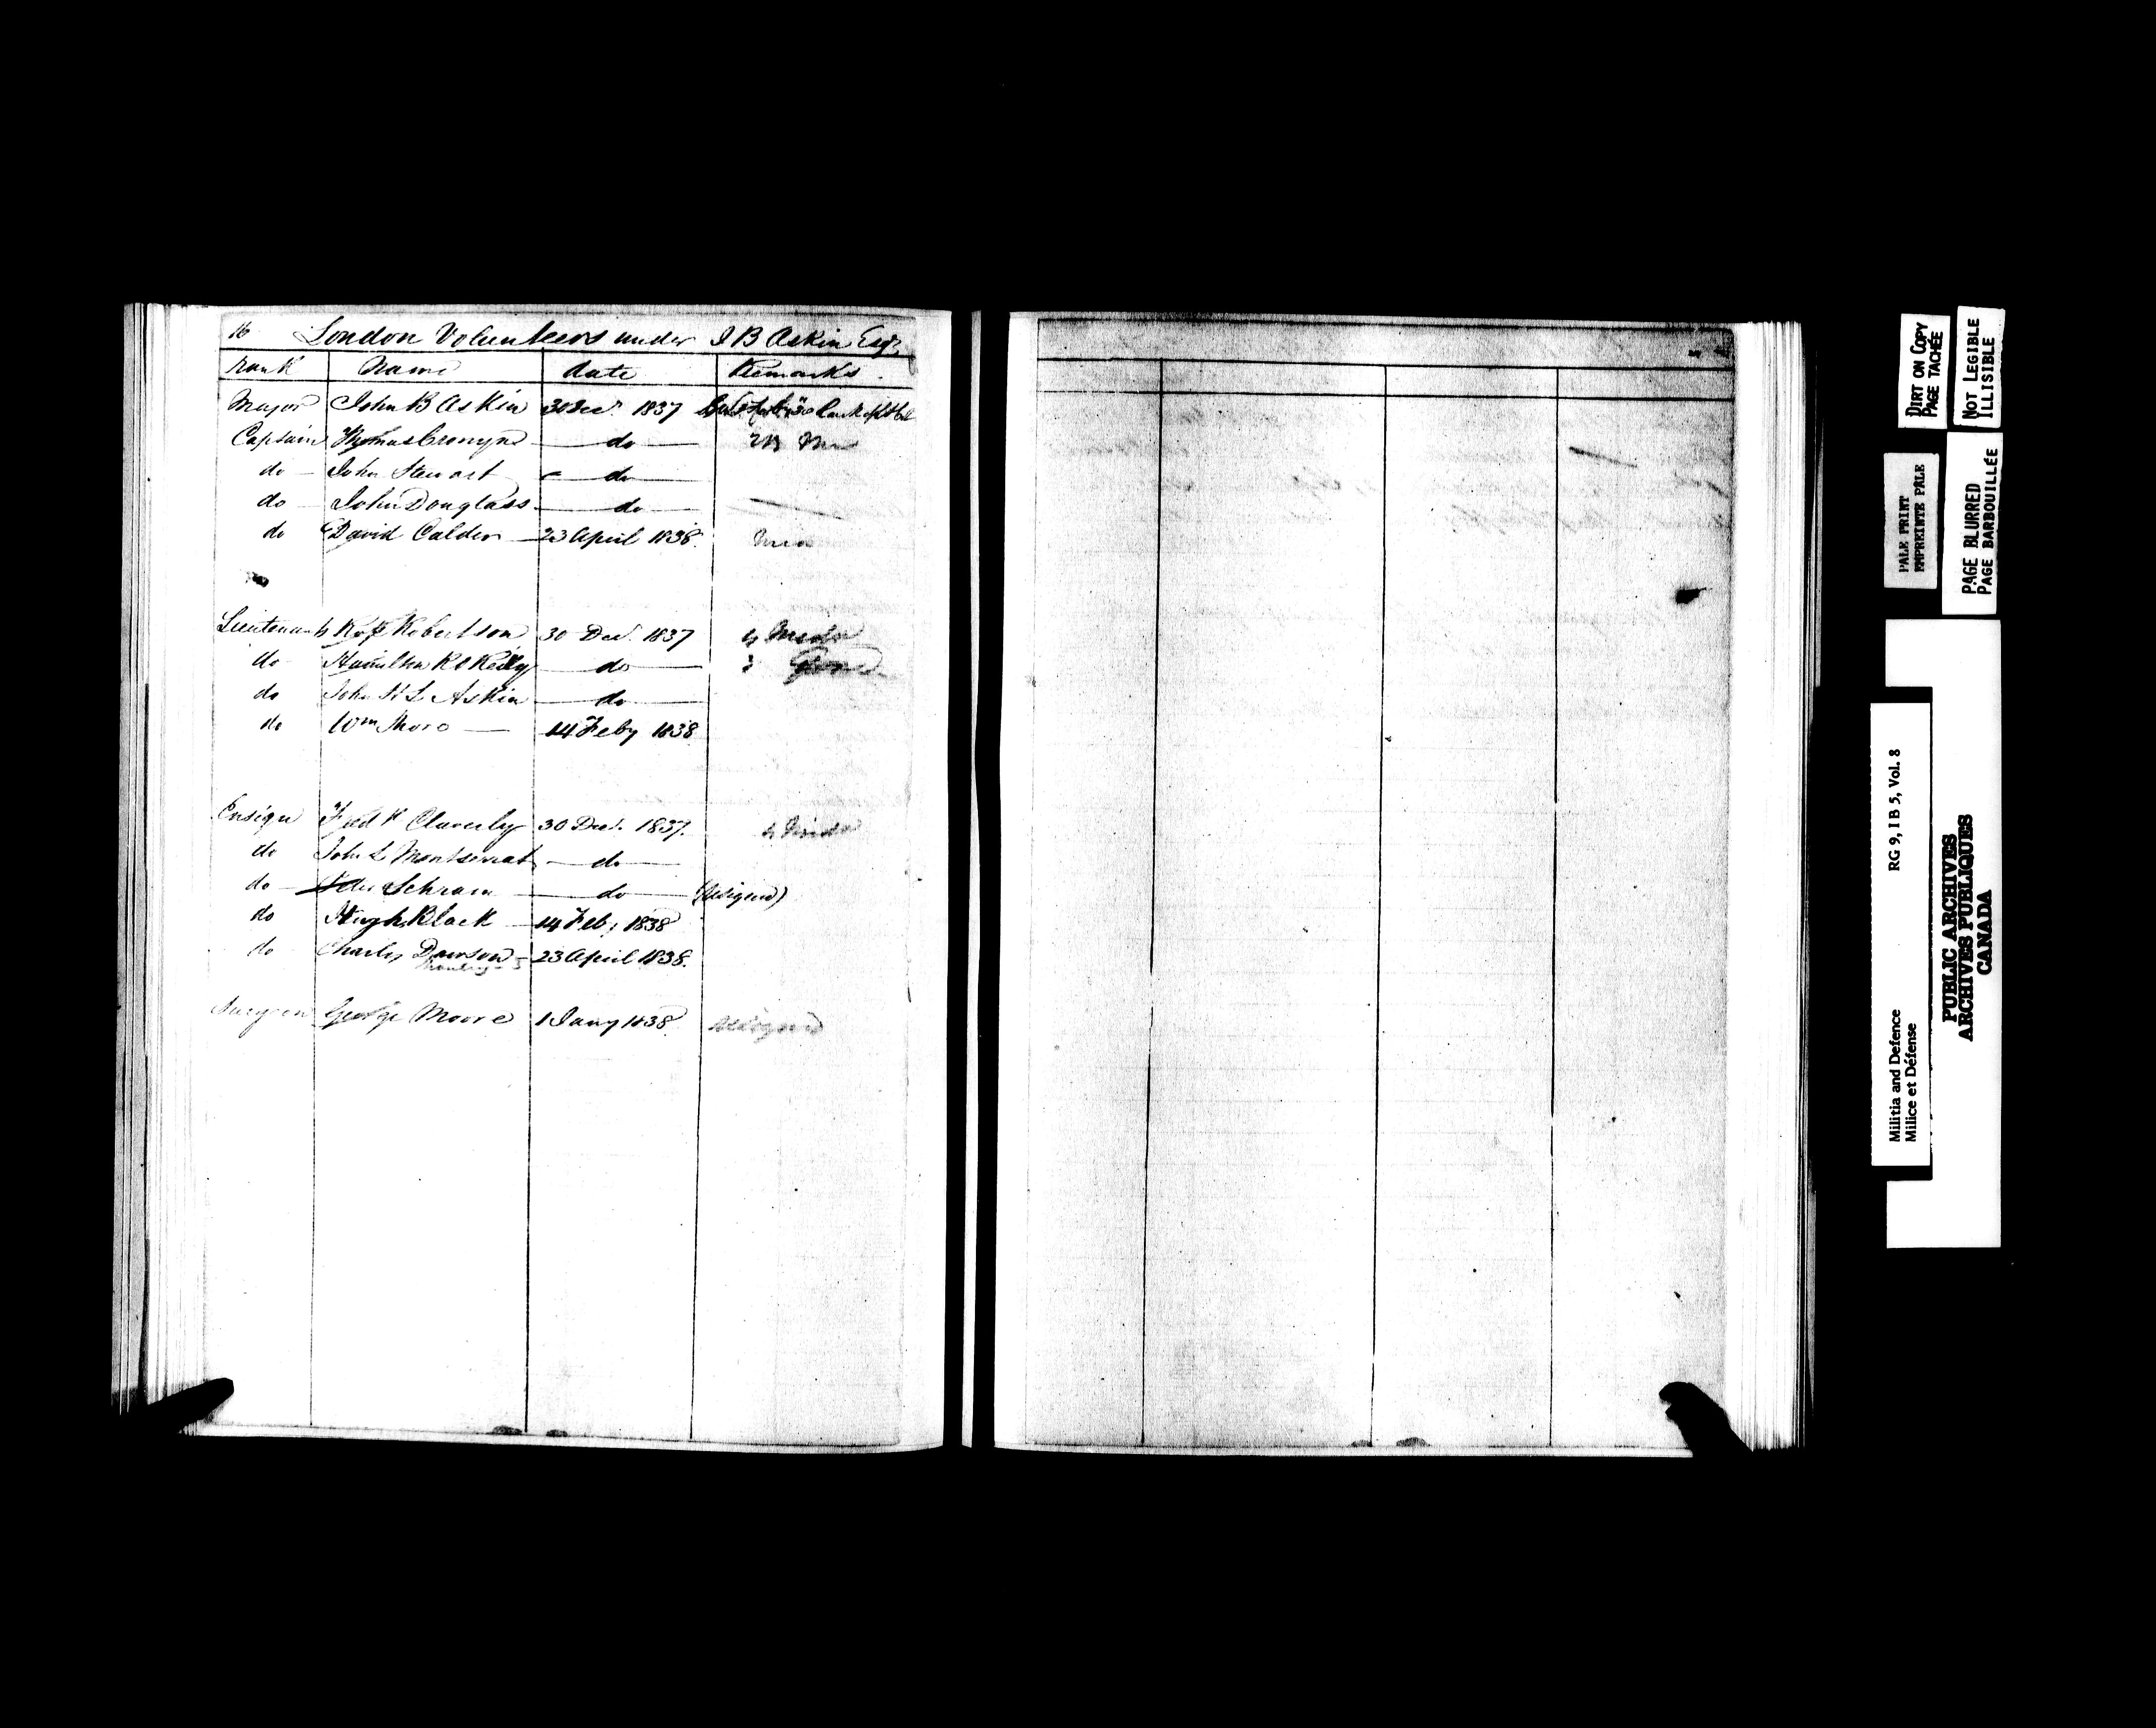 16 London Volunteers under J B Askin Esqr.
rank Name date Remarks.
Major John B Askin 30 Dec. 1837 rank of Lt Col
Captain Thomas Cronyn do
do John Stewart do
do John Douglass do
do David Calder 23 April 1838.
Lieutenant Robertson 30 Dec. 1837
do Hamilton R O Reilly do
do John H L Askin do
do Wm 14 Feby 1838
Ensign Fred H Claverly 30 Dec. 1837.
do John L Montserrat do
do Schram do (resigned)
do Hugh Black 14 Feby 1838
do Charles Dawson 23 April 1838.
Surgeon George Moore 1 Jany 1838. resigned
DIRT ON COPY
PAGE TACHÉE
NOT LEGIBLE
ILLISIBLE
PALE PRINT
EMPREINTE PALE
PAGE BLURRED
PAGE BARBOUILLÉE
RG 9, I B 5, Vol. 8
Militia and Defence
Milice et Défense
PUBLIC ARCHIVES
ARCHIVES PUBLIQUES
CANADA